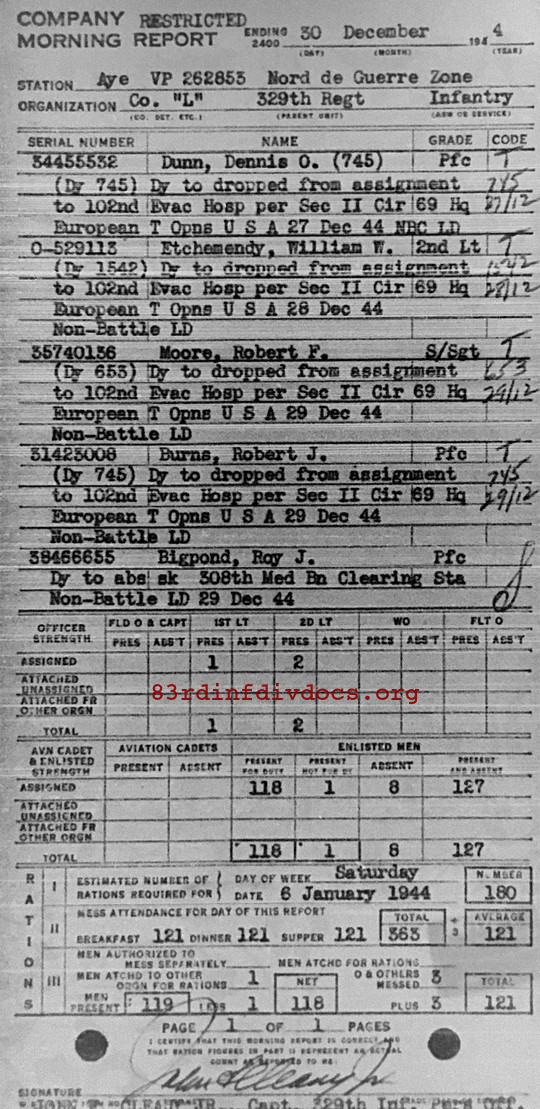 COMPANY RESTRICTED
MORNING REPORT ENDING 2400 30 December 1944
(DAY) (MONTH) (YEAR)
STATION Aye VP 262853 Nord de Guerre Zone
ORGANIZATION Co. "L" 329th Regt Infantry
(CO. DET. ETC.) (PARENT UNIT) (ARM OR SERVICE)
SERIAL NUMBER NAME GRADE CODE
34455532 Dunn, Dennis O. (745) Pfc T
(Dy 745) Dy to dropped from assignment 745
to 102nd Evac Hosp per Sec II Cir 69 Hq 27/12
European T Opns U S A 27 Dec 44 NBC LD
O-529113 Etchemendy, William W. 2nd Lt T
(Dy 1542) Dy to dropped from assignment 1542
to 102nd Evac Hosp per Sec II Cir 69 Hq 28/12
European T Opns U S A 28 Dec 44
Non-Battle LD
35740136 Moore, Robert F. S/Sgt T
(Dy 653) Dy to dropped from assignment 653
to 102nd Evac Hosp per Sec II Cir 69 Hq 29/12
European T Opns U S A 29 Dec 44
Non-Battle LD
31423008 Burns, Robert J. Pfc T
(Dy 745) Dy to dropped from assignment 745
to 102nd Evac Hosp per Sec II Cir 69 Hq 29/12
European T Opns U S A 29 Dec 44
Non-Battle LD
38466655 Bigpond, Roy J. Pfc
Dy to abs sk 308th Med Bn Clearing Sta
Non-Battle LD 29 Dec 44
OFFICER STRENGTH FLD O & CAPT 1ST LT 2D LT WO FLT O
PRES ABS'T PRES ABS'T PRES ABS'T PRES ABS'T PRES ABS'T
ASSIGNED 1 2
ATTACHED UNASSIGNED
83rdinfdivdocs.org
ATTACHED FR OTHER ORGN
TOTAL 1 2
AVN CADET & ENLISTED STRENGTH AVIATION CADETS ENLISTED MEN
PRESENT ABSENT PRESENT FOR DUTY PRESENT NOT FOR DY ABSENT PRESENT AND ABSENT
ASSIGNED 118 1 8 127
ATTACHED UNASSIGNED
ATTACHED FR OTHER ORGN
TOTAL 118 1 8 127
RATIONS
I ESTIMATED NUMBER OF RATIONS REQUIRED FOR DAY OF WEEK Saturday NUMBER
DATE 6 January 1944 180
II MESS ATTENDANCE FOR DAY OF THIS REPORT TOTAL ÷ 3 AVERAGE
BREAKFAST 121 DINNER 121 SUPPER 121 363 121
III MEN AUTHORIZED TO MESS SEPARATELY MEN ATCHD FOR RATIONS
MEN ATCHD TO OTHER ORGN FOR RATIONS 1 NET O & OTHERS MESSED 3 TOTAL
MEN PRESENT 119 LESS 1 118 PLUS 3 121
PAGE 1 OF 1 PAGES
I CERTIFY THAT THIS MORNING REPORT IS CORRECT AND
THAT RATION FIGURES IN PART II REPRESENT AN ACTUAL
COUNT AS REPORTED TO ME:
SIGNATURE
JR., Capt, 329th Inf, Pers Off.